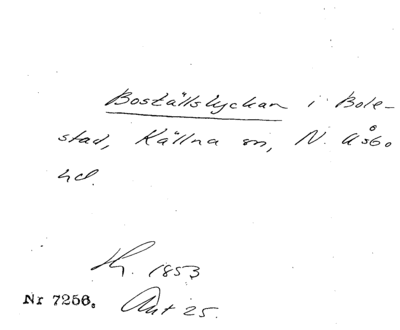 Boställslyckan i Bole-
stad, Källna sn, N. Åsbo
hd.
1853
Nr 7256. Ant 25.